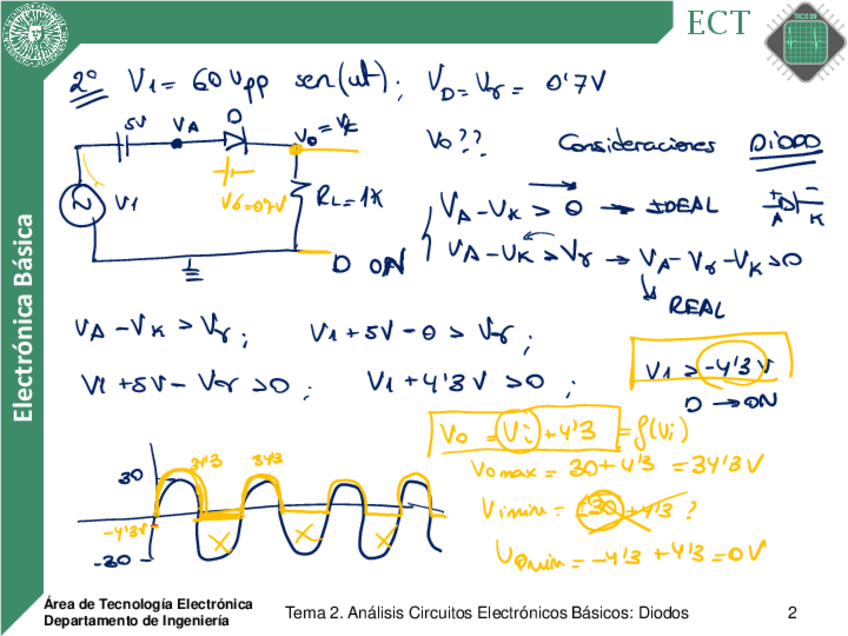 ECT
TIC019
Electrónica Básica
2º V1 = 60 Vpp sen(wt); VD = Vγ = 0'7V
5V VA D Vo = VK
Vo?? Consideraciones DIODO
V1 Vγ=0'7V RL = 1K
VA - VK > 0 → IDEAL
+ -
A K
D ON
VA - VK > Vγ → VA - Vγ - VK > 0
REAL
VA - VK > Vγ; V1 + 5V - 0 > Vγ;
V1 + 5V - Vγ > 0; V1 + 4'3V > 0; V1 > -4'3V
D → ON
Vo = Vi + 4'3 = f(Vi)
Vo max = 30 + 4'3 = 34'3V
30 34'3 34'3
Vi min = -30 + 4'3 ?
-4'3V
-30
Vo min = -4'3 + 4'3 = 0V
Área de Tecnología Electrónica
Departamento de Ingeniería
Tema 2. Análisis Circuitos Electrónicos Básicos: Diodos
2